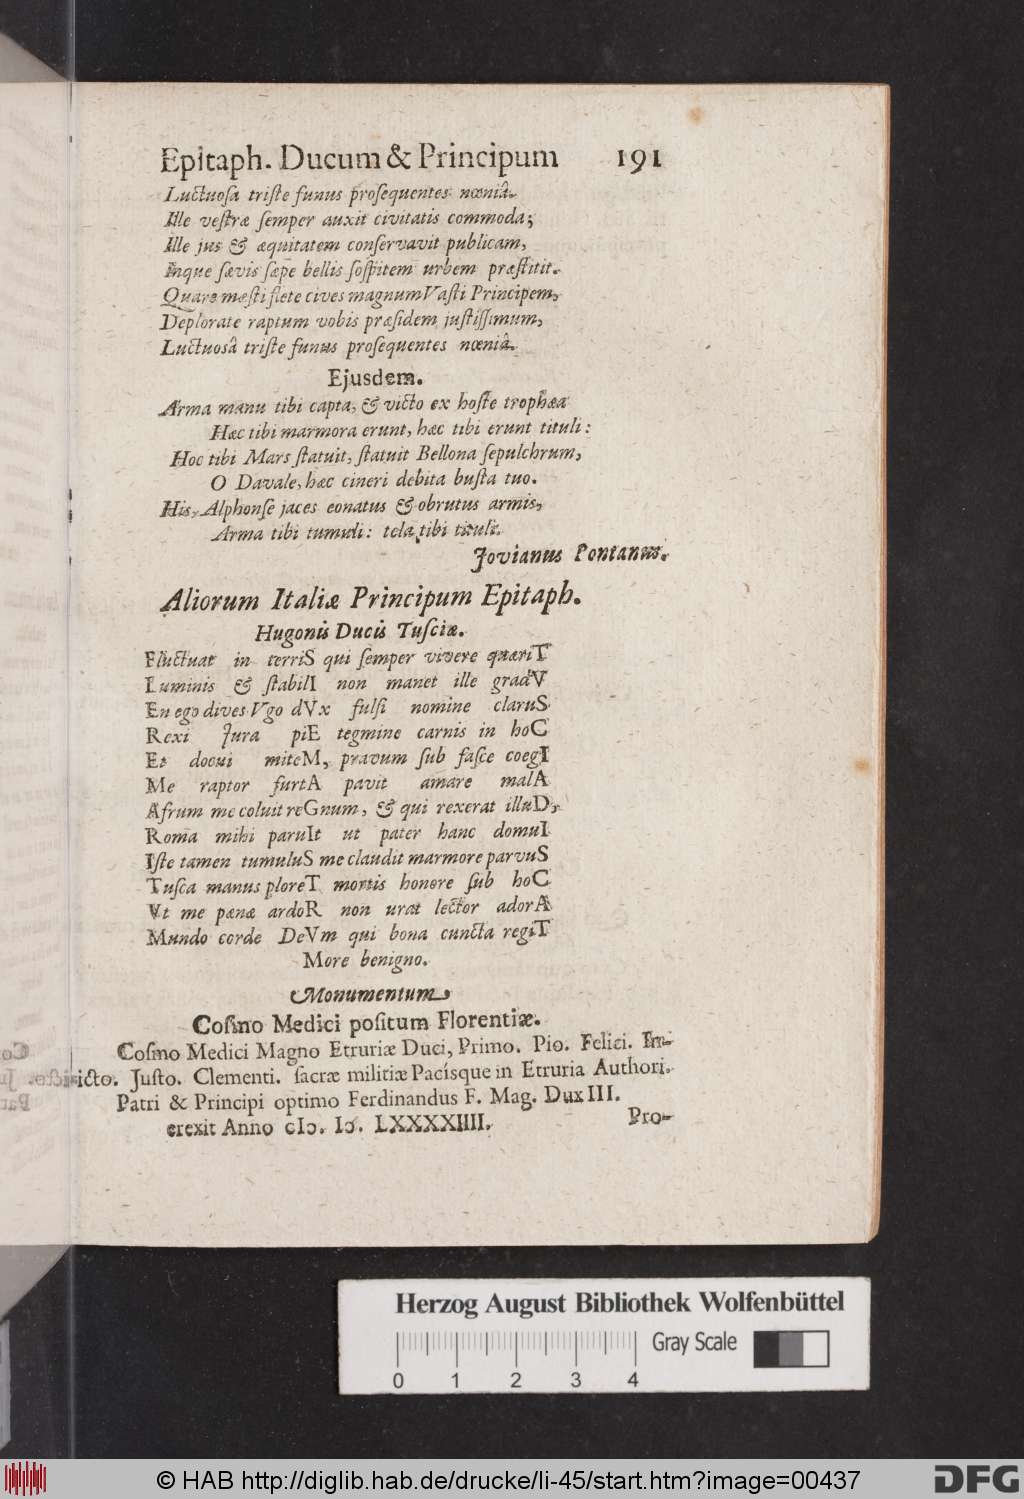 Epitaph. Ducum & Principum 191
Luctuosa triste funus prosequentes nœniâ.
Ille vestræ semper auxit civitatis commoda;
Ille jus & æquitatem conservavit publicam,
Inque sævis sæpe bellis sospitem urbem præstitit.
Quare mæsti flete cives magnum Vasti Principem,
Deplorate raptum vobis præsidem justissimum,
Luctuosâ triste funus prosequentes nœniâ.
Ejusdem.
Arma manu tibi capta, & victo ex hoste trophæa
Hæc tibi marmora erunt, hæc tibi erunt tituli:
Hoc tibi Mars statuit, statuit Bellona sepulchrum,
O Davale, hæc cineri debita busta tuo.
His, Alphonse jaces conatus & obrutus armis,
Arma tibi tumuli: tela tibi tituli.
Jovianus Pontanus.
Aliorum Italiæ Principum Epitaph.
Hugonis Ducis Tusciæ.
Fluctuat in terriS qui semper vivere quæriT
Luminis & stabilI non manet ille gradV
En ego dives Vgo dVx fulsi nomine claruS
Rexi Jura piE tegmine carnis in hoC
Et docui miteM, pravum sub fasce coegI
Me raptor furtA pavit amare malA
Afrum me coluit reGnum, & qui rexerat illuD,
Roma mihi paruIt ut pater hanc domuI
Iste tamen tumuluS me claudit marmore parvuS
Tusca manus ploreT mortis honore sub hoC
Vt me pœnæ ardoR non urat lector adorA
Mundo corde DeVm qui bona cuncta regiT
More benigno.
Monumentum
Cosmo Medici positum Florentiæ.
Cosmo Medici Magno Etruriæ Duci, Primo. Pio. Felici. In-
victo. Justo. Clementi. sacræ militiæ Pacisque in Etruria Authori.
Patri & Principi optimo Ferdinandus F. Mag. Dux III.
erexit Anno cIɔ. Iɔ. LXXXXIIII.
Pro-
Herzog August Bibliothek Wolfenbüttel
Gray Scale
0 1 2 3 4
© HAB http://diglib.hab.de/drucke/li-45/start.htm?image=00437
DFG